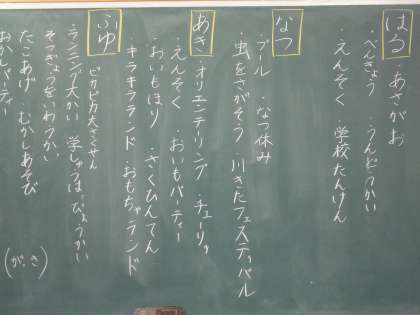 はる ・あさがお
・べんきょう ・うんどうかい
・えんそく ・学校たんけん
なつ
・プール ・なつ休み
・虫をさがそう ・川きたフェスティバル
あき ・オリエンテーリング ・チューリッ
・えんそく ・おいもパーティー
・おいもほり ・さくひんてん
・キラキラランド ・おもちゃランド
ふゆ ・ピカピカ大さくせん
・ランニング大かい 学しゅうはっぴょうかい
そつぎょうをいわうかい
たこあげ むかしあそび
おかしパーティー
(が、き)